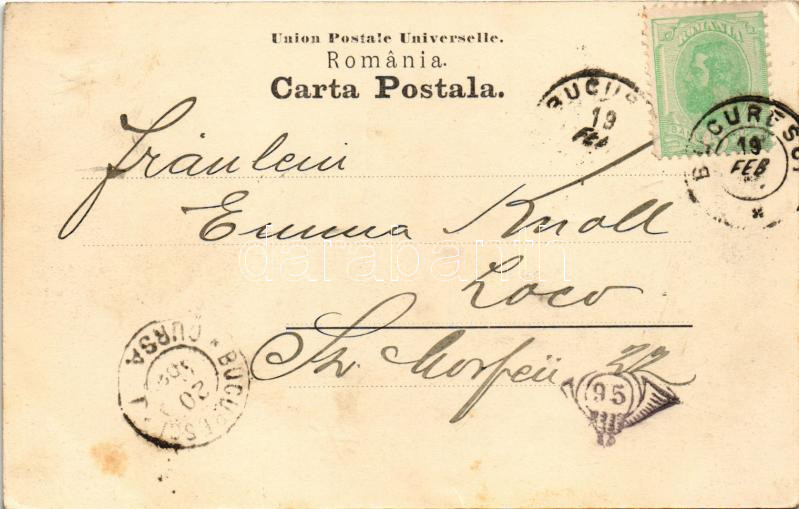 Union Postale Universelle.
România.
Carta Postala.
ROMANIA
BUCUR
19
FEB
BUCURESCI
19
FEB
Fräulein
Emma Knoll
Loco
Str. Morfeu 22
95
* BUCURESCI *
CURSA I
20
darabanth